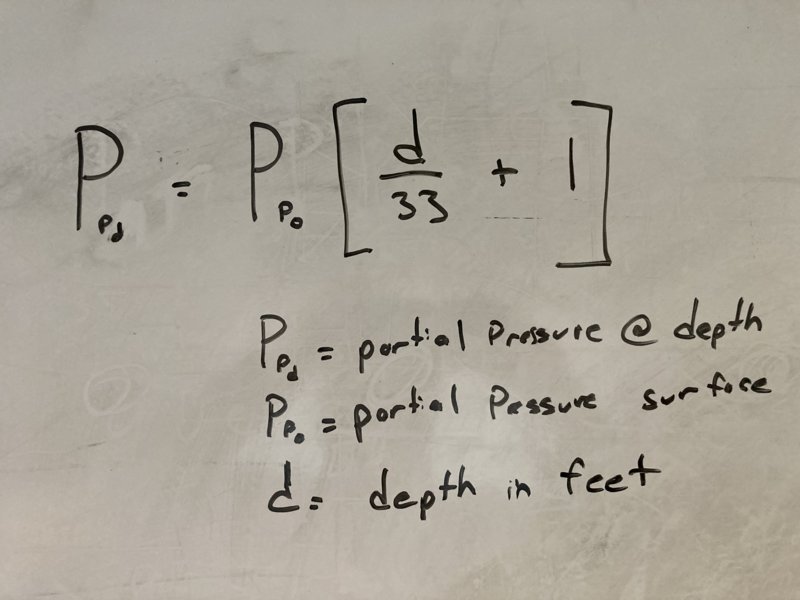 P_{P_d} = P_{P_o} [ d/33 + 1 ]
P_{P_d} = partial Pressure @ depth
P_{P_o} = partial Pessure surface
d = depth in feet